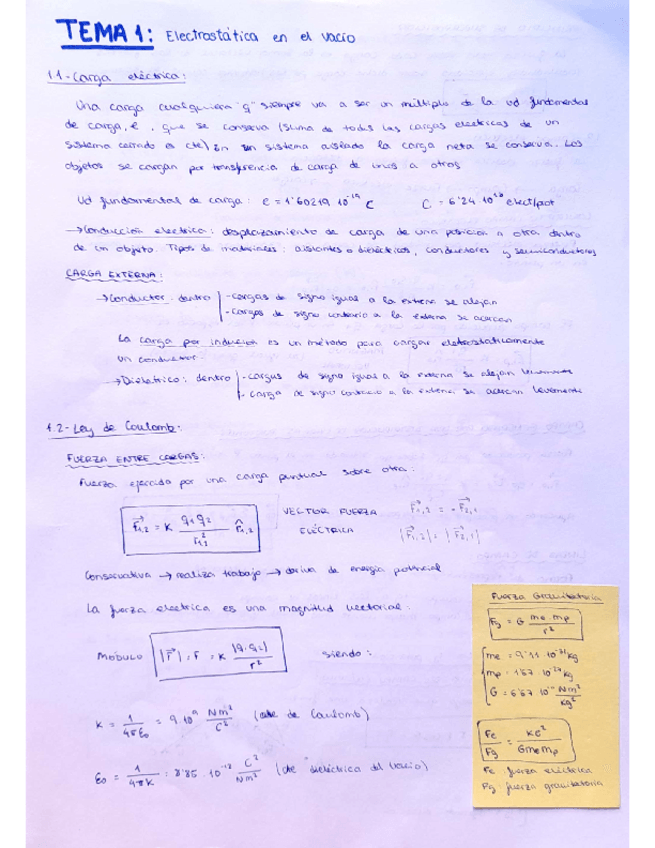 TEMA 1: Electrostática en el vacío
1.1- Carga eléctrica:
Una carga cualquiera "q" siempre va a ser un múltiplo de la ud fundamental
de carga, e, que se conserva (suma de todas las cargas electricas de un
sistema cerrado es cte) En un sistema aislado la carga neta se conserva. Los
objetos se cargan por transferencia de carga de unos a otros
Ud fundamental de carga: e = 1'60219 · 10⁻¹⁹ C C = 6'24 · 10¹⁸ elect/prot
→ Conducción electrica: desplazamiento de carga de una posición a otra dentro
de un objeto. Tipos de materiales: aislantes o dieléctricos, conductores y semiconductores
CARGA EXTERNA:
→ Conductor: dentro - cargas de signo igual a la externa se alejan
- Cargas de signo contrario a la externa se acercan
La carga por inducción es un método para cargar eletrostaticamente
un conductor
→ Dieletrico: dentro - cargas de signo igual a la externa se alejan levemente
- carga de signo contrario a la externa se acercan levemente
1.2- Ley de Coulomb:
FUERZA ENTRE CARGAS:
Fuerza ejercida por una carga puntual sobre otra:
F⃗₁,₂ = K q₁q₂ / r₁,₂² r̂₁,₂ VECTOR FUERZA ELÉCTRICA F⃗₁,₂ = -F⃗₂,₁
|F⃗₁,₂| = |F⃗₂,₁|
Conservativa → realiza trabajo → deriva de energía potencial
La fuerza electrica es una magnitud vectorial:
MÓDULO |F⃗| = F = K |q₁·q₂| / r² siendo:
K = 1 / 4πε₀ = 9·10⁹ Nm² / C² (cte de Coulomb)
ε₀ = 1 / 4πK = 8'85 · 10⁻¹² C² / Nm² (cte dieléctrica del vacío)
Fuerza Gravitatoria
Fg = G me mp / r²
me = 9'11 · 10⁻³¹ kg
mp = 1'67 · 10⁻²⁷ kg
G = 6'67 · 10⁻¹¹ Nm² / kg²
Fe / Fg = Ke² / G me mp
Fe: fuerza eléctrica
Fg: fuerza gravitatoria